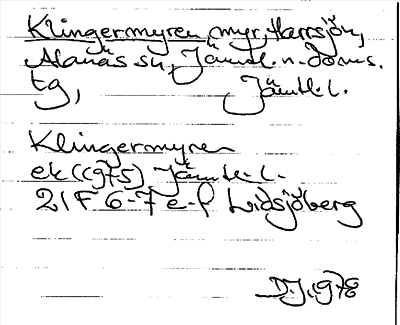 Klingermyren, myr, Harrsjön,
Alanäs sn, Jämtl. n. doms.
tg, Jämtl. l.
Klingermyren
ek (c975) Jämtl. l.
21F 6-7 e-f Lidsjöberg
D.J. 1978